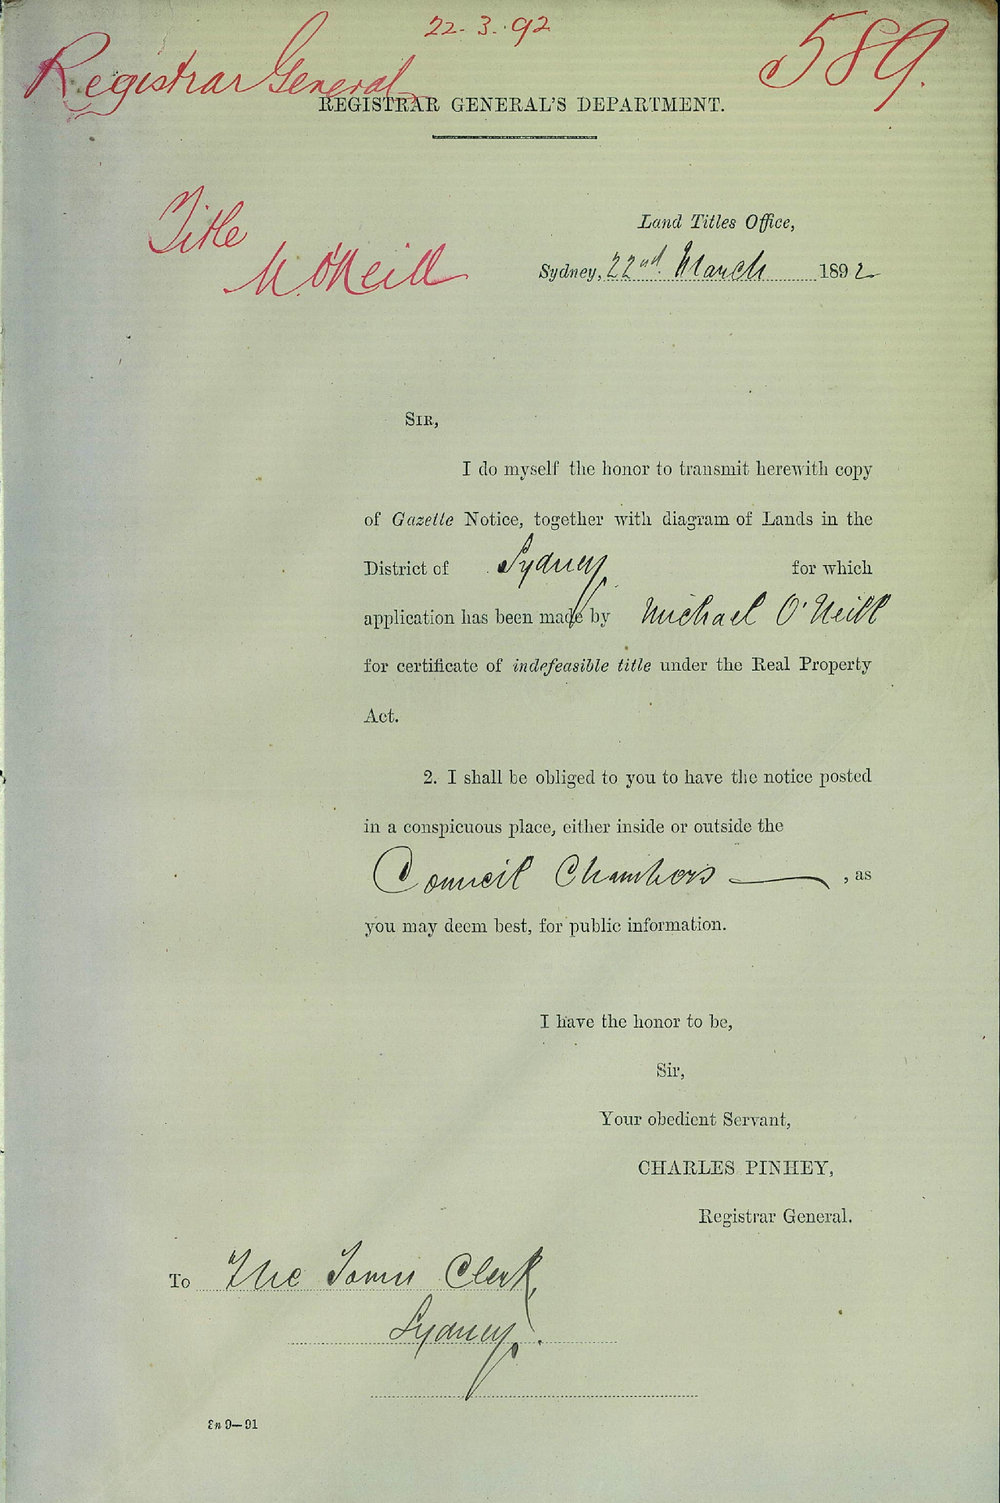 22.3.92
Registrar General
589.
REGISTRAR GENERAL'S DEPARTMENT.
Title
M. O'Neill
Land Titles Office,
Sydney, 22nd. March 1892
SIR,
I do myself the honor to transmit herewith copy
of Gazette Notice, together with diagram of Lands in the
District of Sydney for which
application has been made by Michael O'Neill
for certificate of indefeasible title under the Real Property
Act.
2. I shall be obliged to you to have the notice posted
in a conspicuous place, either inside or outside the
Council Chambers , as
you may deem best, for public information.
I have the honor to be,
Sir,
Your obedient Servant,
CHARLES PINHEY,
Registrar General.
To The Town Clerk,
Sydney.
9—91